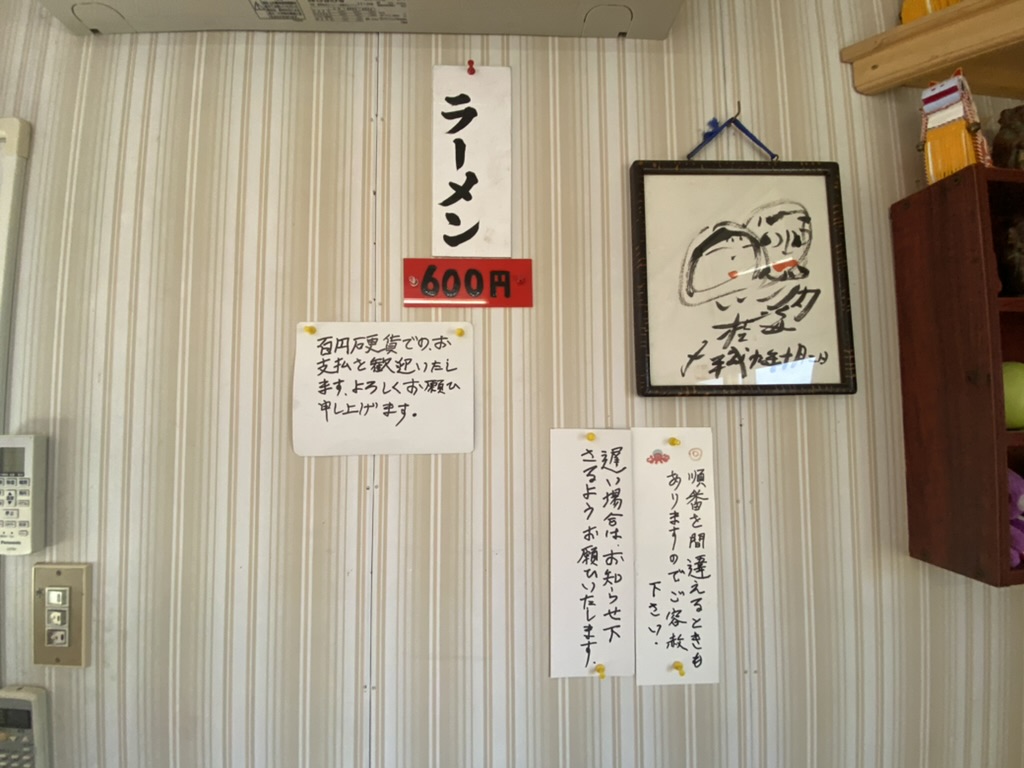 ラーメン
600円
百円硬貨での、お
支払を歓迎いたし
ます、よろしくお願ひ
申し上げます。
順番を間違えるときも
ありますのでご容赦
下さい。
遅い場合は、お知らせ下
さるようお願ひいたします。
平成九年十月一日
Panasonic